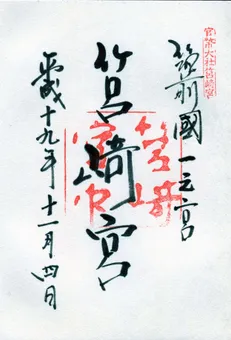 官幣大社筥崎宮
筑前國一之宮
筥崎宮
筥崎宮
平成十九年十一月四日